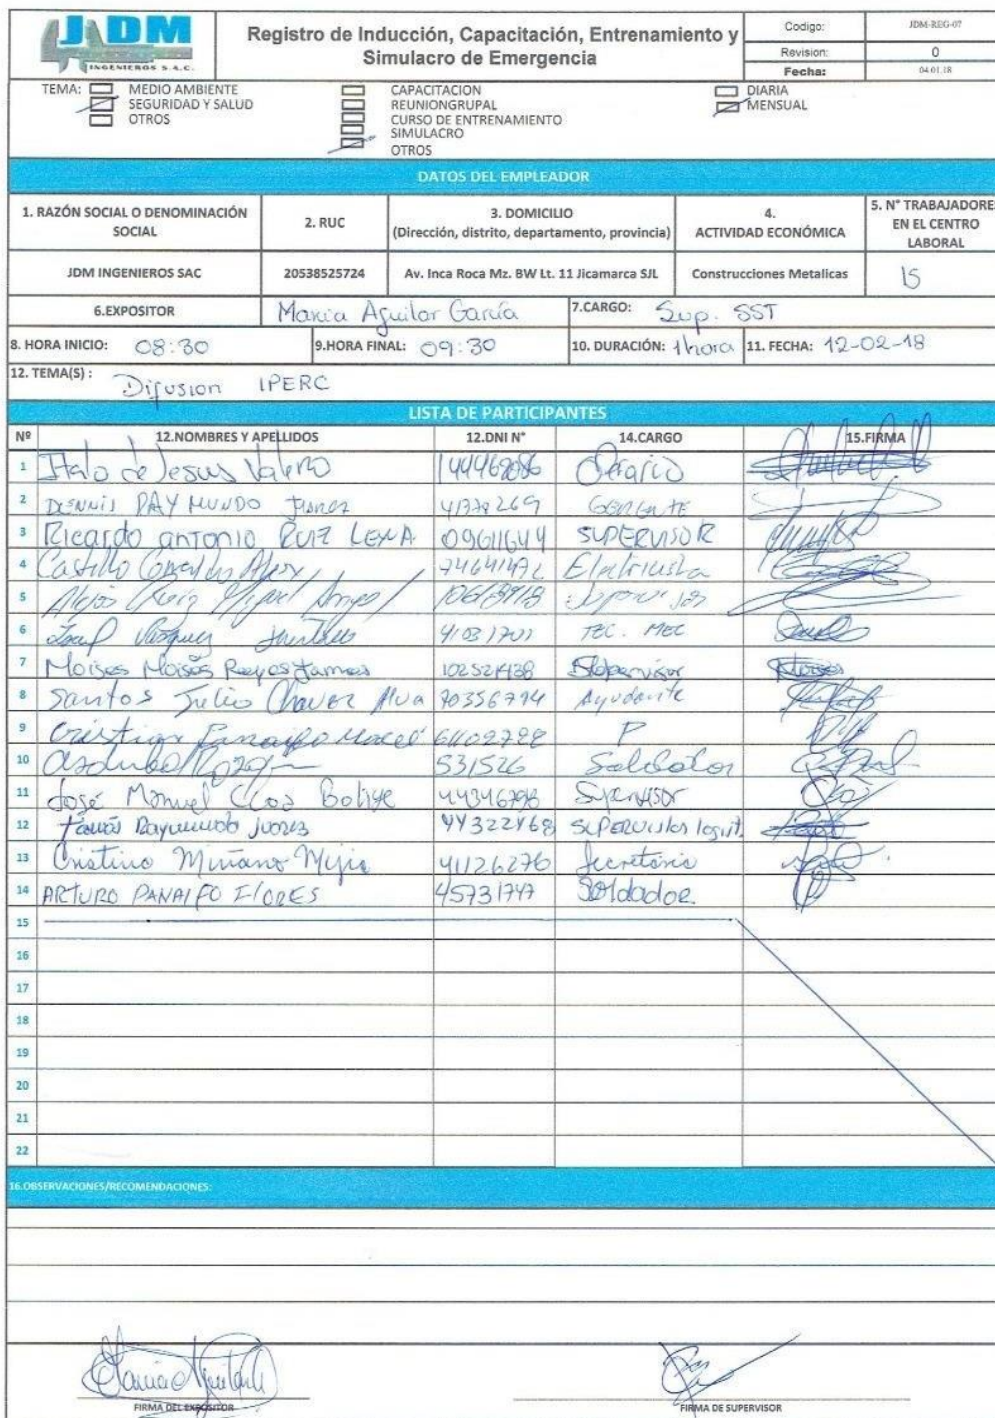 JDM
INGENIEROS S.A.C.
Registro de Inducción, Capacitación, Entrenamiento y
Simulacro de Emergencia
Codigo: JDM-REG-07
Revision: 0
Fecha: 04.01.18
TEMA:
MEDIO AMBIENTE
SEGURIDAD Y SALUD
OTROS
CAPACITACION
REUNIONGRUPAL
CURSO DE ENTRENAMIENTO
SIMULACRO
OTROS
DIARIA
MENSUAL
DATOS DEL EMPLEADOR
1. RAZÓN SOCIAL O DENOMINACIÓN SOCIAL
2. RUC
3. DOMICILIO
(Dirección, distrito, departamento, provincia)
4.
ACTIVIDAD ECONÓMICA
5. N° TRABAJADORES
EN EL CENTRO
LABORAL
JDM INGENIEROS SAC 20538525724 Av. Inca Roca Mz. BW Lt. 11 Jicamarca SJL Construcciones Metalicas 15
6.EXPOSITOR Maricia Aguilar García 7.CARGO: Sup. SST
8. HORA INICIO: 08:30 9.HORA FINAL: 09:30 10. DURACIÓN: 1 hora 11. FECHA: 12-02-18
12. TEMA(S): Difusion IPERC
LISTA DE PARTICIPANTES
Nº 12.NOMBRES Y APELLIDOS 12.DNI N° 14.CARGO 15.FIRMA
1 Italo de Jesus Valerio Operario
2 DENNIS RAYMUNDO Juarez GERENTE
3 Ricardo antonio RUIZ LEXA 09611644 SUPERVISOR
4 Castillo Alex Electricista
5 Alejos Miguel Angel
6 TEC. MEC
7 Moises Moisés Reyes Jaimes Supervisor
8 Santos Julio Chavez Alva Ayudante
9 Cristian 61102728 P
10 531526 Soldador
11 José Manuel Bolive Supervisor
12 Raymundo Juarez 44322468 SUPERVISOR logist.
13 Cristina Miñano Mejia 41126276 Secretaria
14 ARTURO PANAIFO FLORES 45731747 Soldador.
15
16
17
18
19
20
21
22
16.OBSERVACIONES/RECOMENDACIONES:
FIRMA DEL EXPOSITOR
FIRMA DE SUPERVISOR